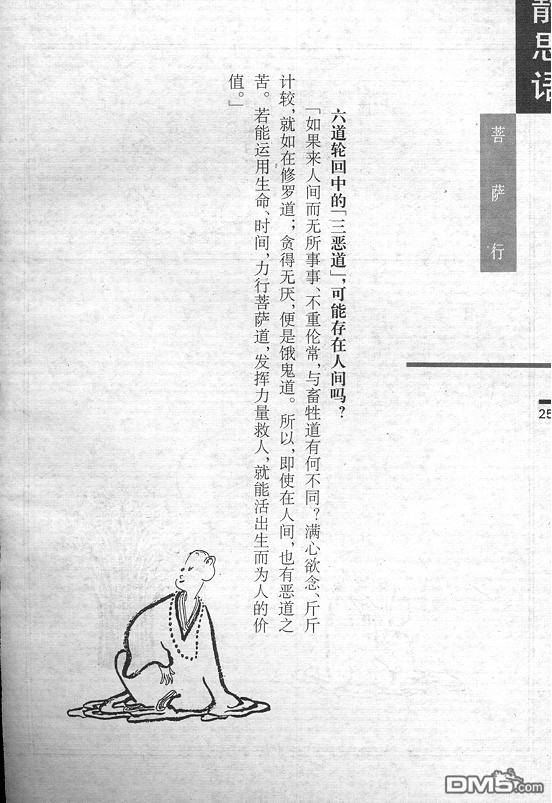 静思话
菩萨行
25
六道轮回中的「三恶道」，可能存在人间吗？
「如果来人间而无所事事、不重伦常，与畜牲道有何不同？满心欲念、斤斤
计较，就如在修罗道；贪得无厌，便是饿鬼道。所以，即使在人间，也有恶道之
苦。若能运用生命、时间，力行菩萨道，发挥力量救人，就能活出生而为人的价
值。」
DM5.com